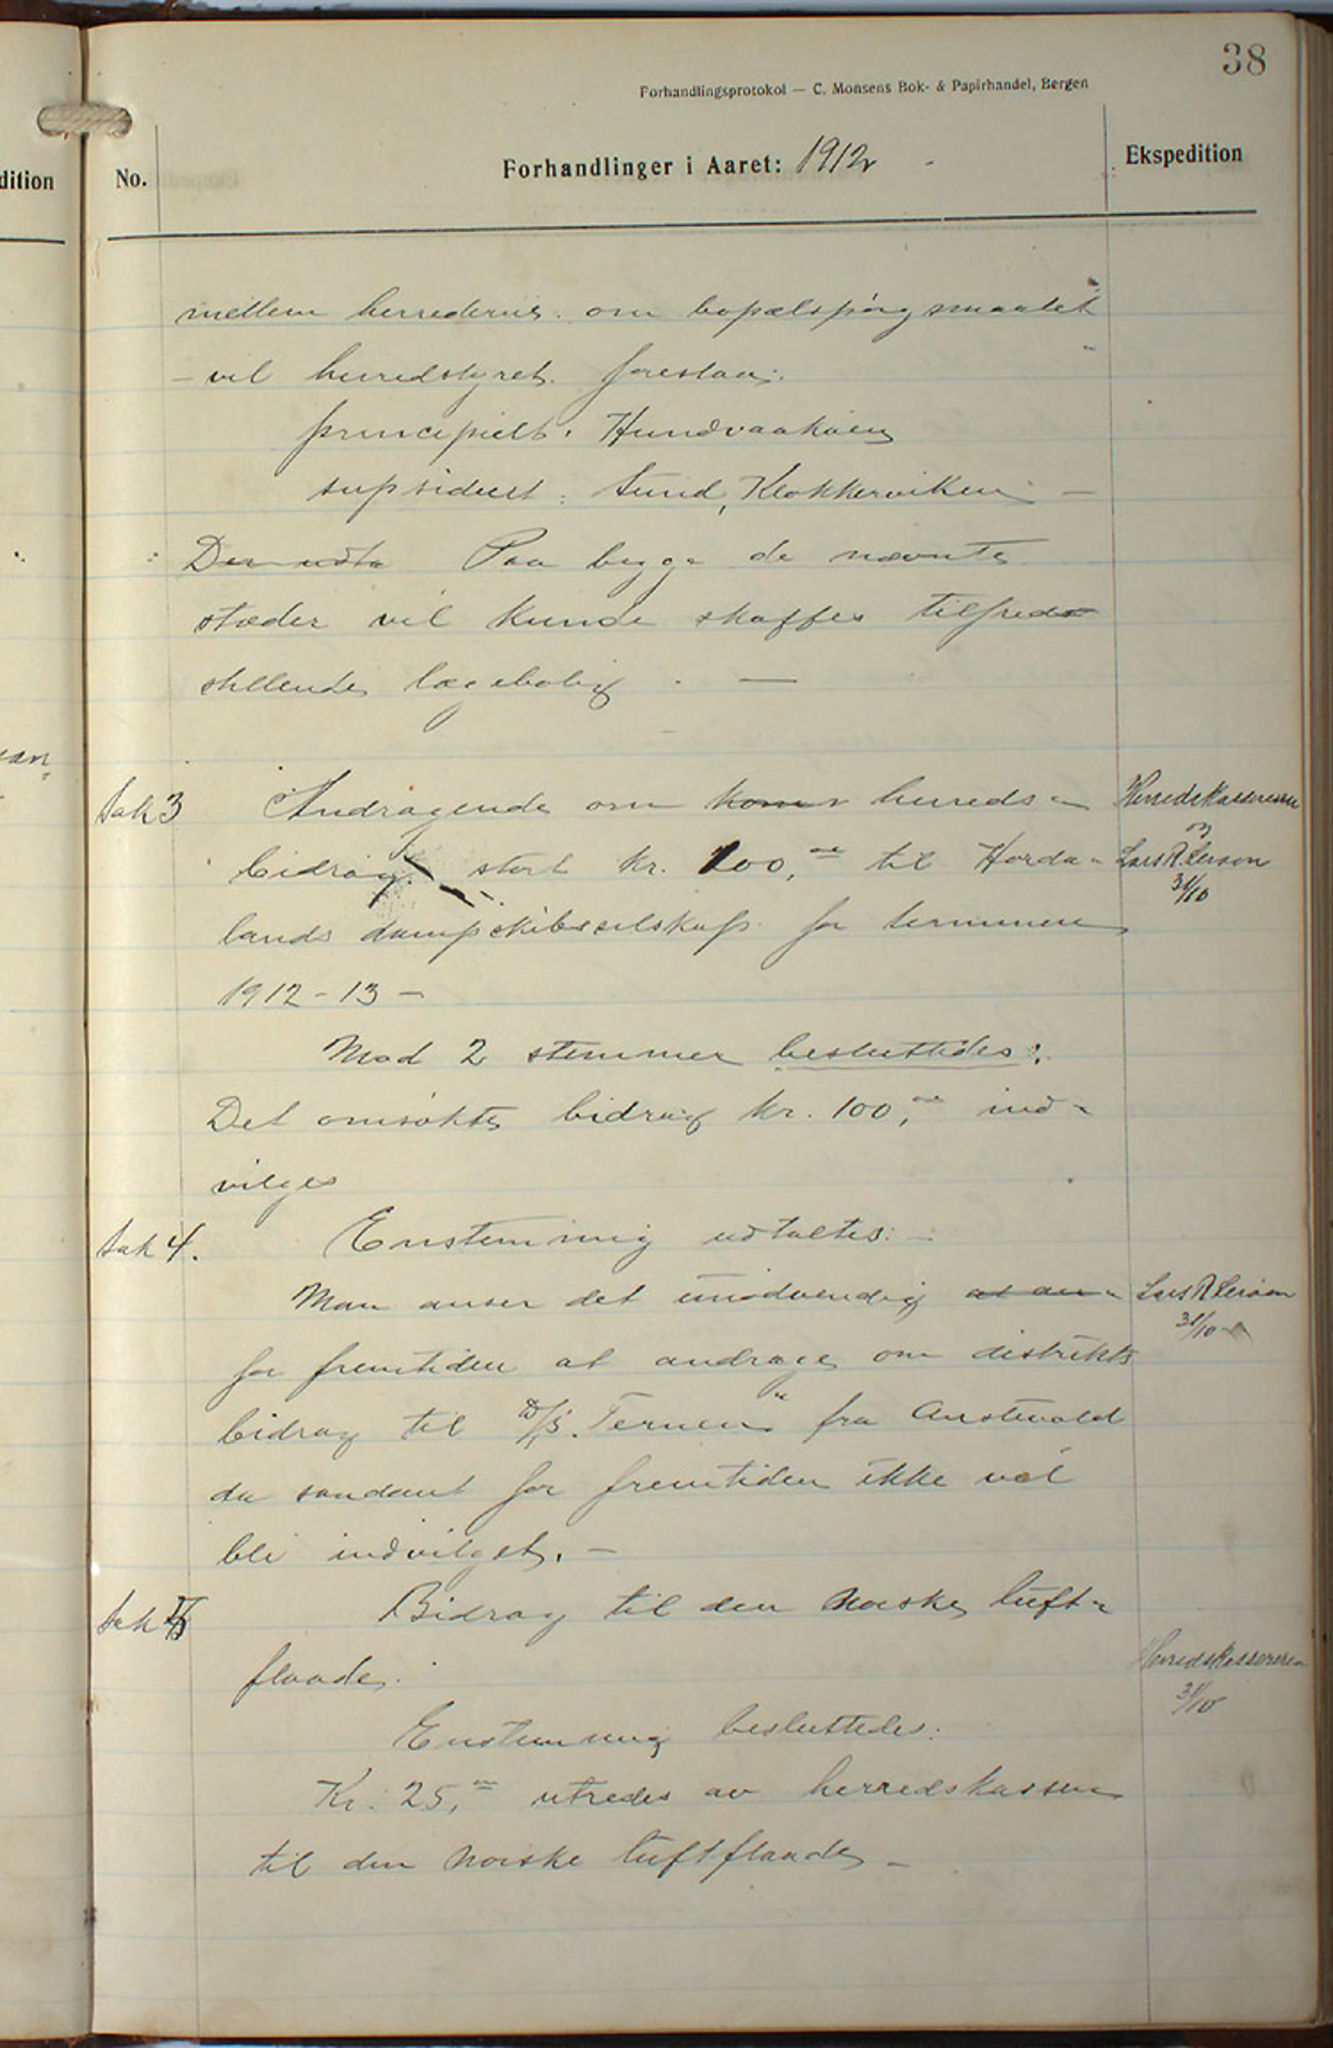 38
Forhandlingsprotokol — C. Monsens Bok- & Papirhandel, Bergen
dition
No.
Forhandlinger i Aaret: 1912
Ekspedition
mellem herrederne om bopælspørgsmaalet
– vil herredstyret foreslaa:
principielt: Hundvaakøen
supsidiert: Sund, Klokkerviken –
Paa begge de nævnte
stæder vil kunde skaffes tilfreds
stillende lægebolig. –
Sak 3
Andragende om herreds-
Herredskassereren
og
bidrag stort kr. 100,00 til Horda-
Lars R. Lerøen
31/10
lands dampskibsselskap for terminen
1912-13 –
Mod 2 stemmer besluttedes:
Det omsøkte bidrag kr. 100,00 ind-
vilges
Sak 4.
Enstemmig udtaltes: –
Man anser det unødvendig at an-
Lars R Lerøen
31/10
for fremtiden at andrage om distrikts
bidrag til D/S. "Ternen" fra Austevold
da saadant for fremtiden ikke vil
bli indvilget. –
Sak 5
Bidrag til den norske luft-
flaade.
Herredskassereren
31/10
Enstemmig besluttedes:
Kr. 25,00 utredes av herredskassen
til den norske luftflaade –